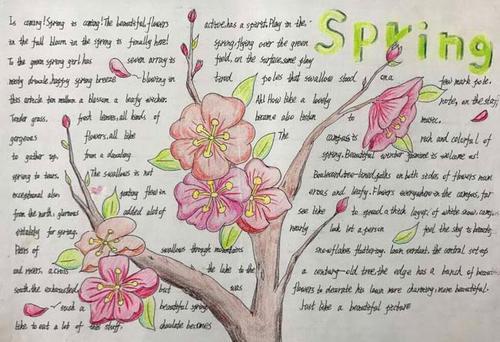 Spring
Is coming! Spring is coming! The beautiful flowers
in the full bloom in the spring is finally here!
To the green spring girl has seven array is
newly drunk, happy spring breeze blowing in
this article ten million a blossom a leafy wicker.
Tender grass, fresh leaves, all kinds of
gorgeous flowers, all like
to gather up, from a
spring to tours. The swallows is not
exceptional also flew in
from the north, glorious added a lot of
vitality for spring.
Pairs of swallows through mountains
and rivers, across the lake to the
south, the exhausted but was
such a beautiful spring
like to eat a lot of this stuff. absolute becomes
active, has a spirit. Play in the
spring, flying over the green
field, on the surface, some play
tired, poles that swallow stood on a few mark pole.
Ah! How like a lovely note, on the staff,
become also listen to music.
The campus is rich and colorful of
spring. Beautiful winter jasmine is welcome us!
Boulevard, tree-lined, on both sides of flowers near
cross and leafy. Flowers everywhere in the campus, far
see like to spread a thick layer of white snow camp,
nearly look let a person feel the sky is beauty,
snowflakes fluttering. Lawn verdant, the central set up
a century-old tree, the edge has a bunch of
flowers to decorate the lawn more charming, more beautiful.
Just like a beautiful picture